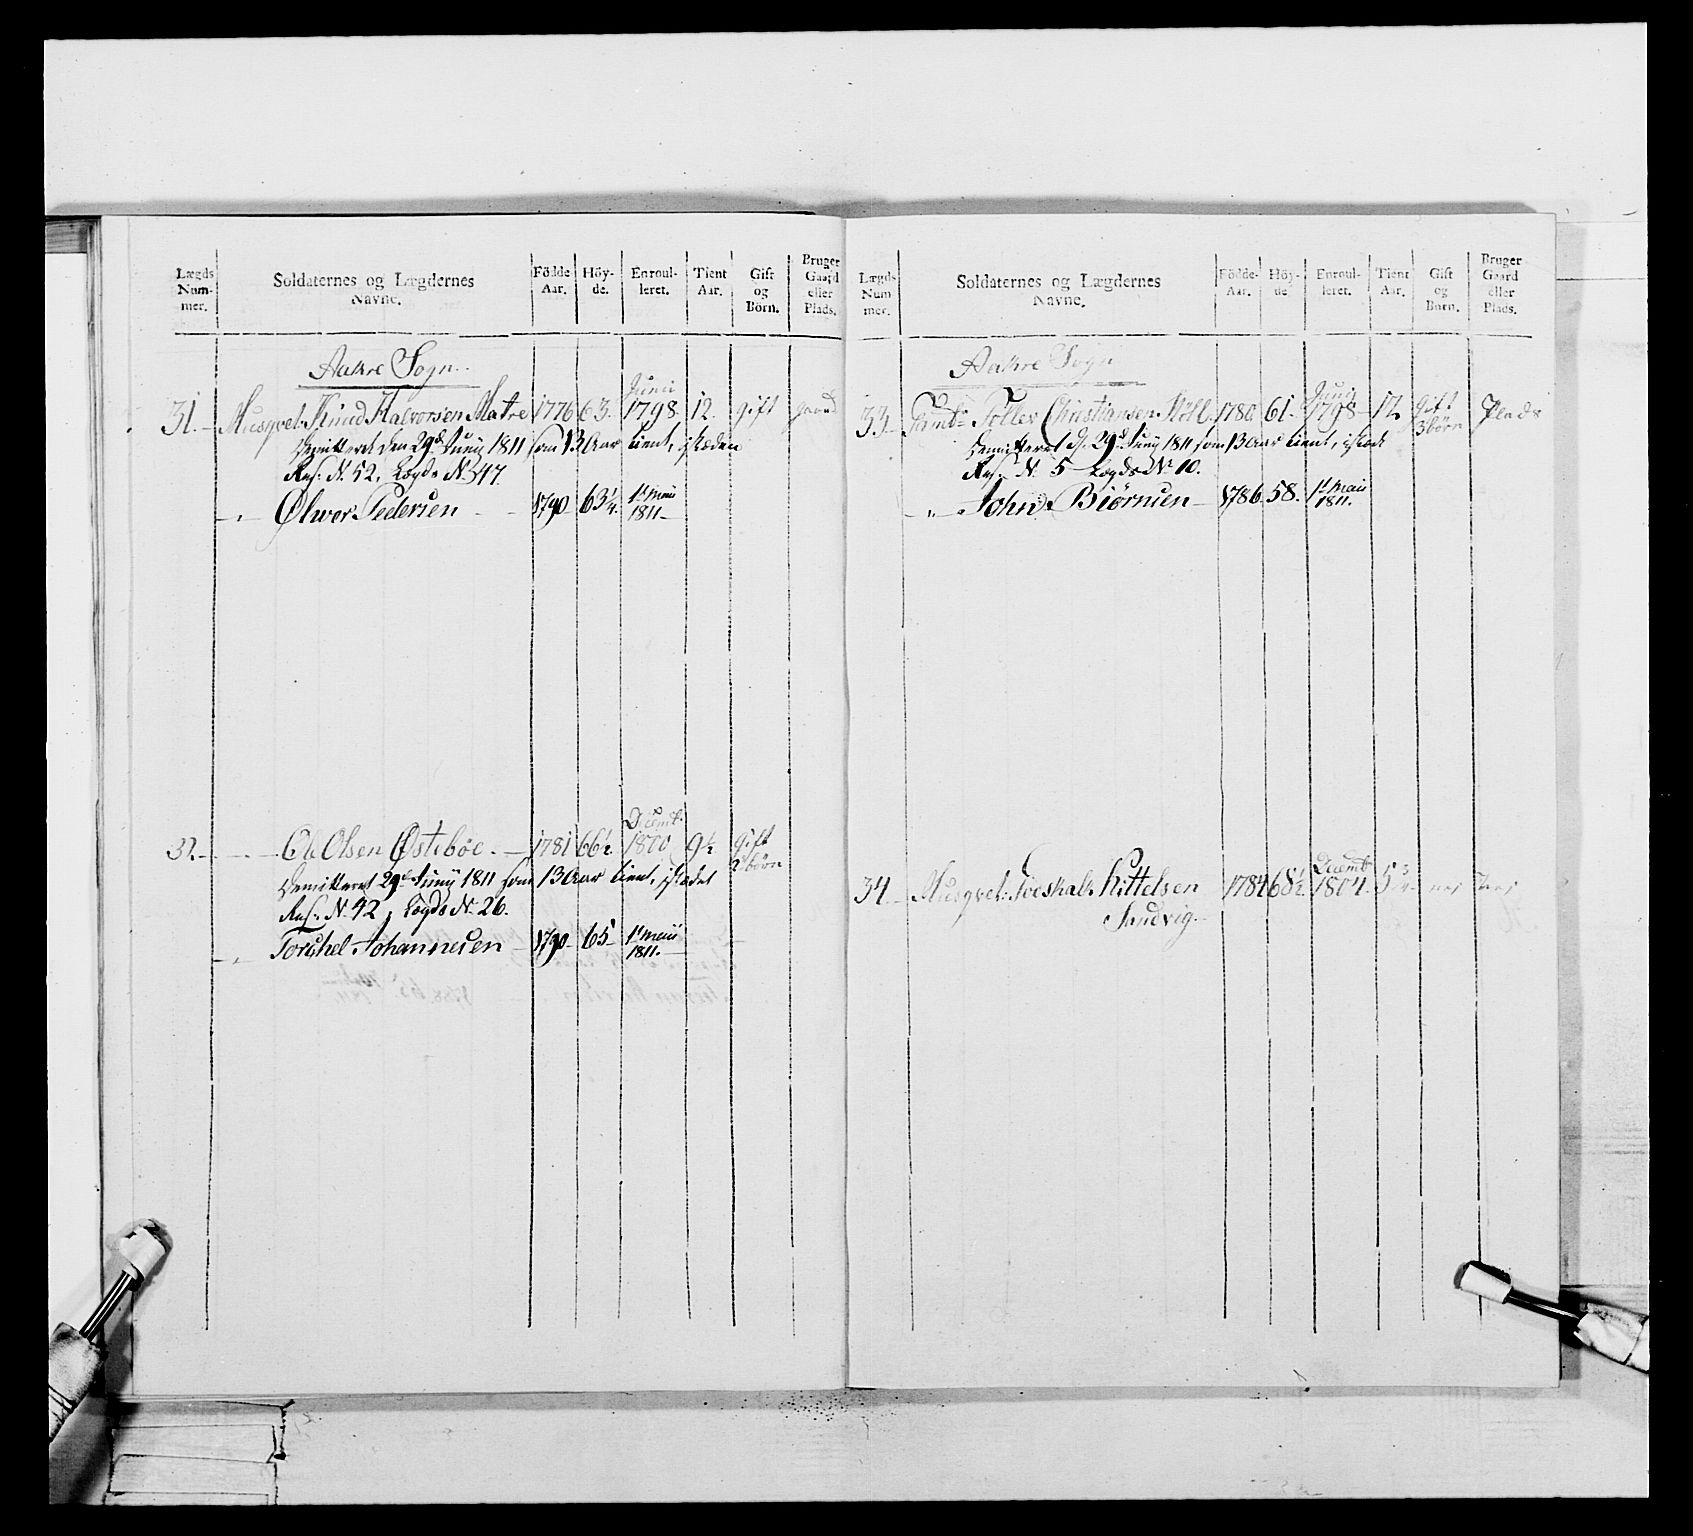 Lægds Num- mer.
Soldaternes og Lægdernes Navne.
Födde Aar.
Höy- de.
Enroul- leret.
Tient Aar.
Gift og Börn.
Bruger Gaard eller Plads.
Aakre Sogn.
31. Musqvet. Knud Halvorsen Matre 1776 63. Junii 1798. 12. gift gaard
Demitteret den 29de Juny 1811 som 13 Aar tient, istæden
Res: N. 52, Lægds N. 347.
Olwer Pedersen 1790 63 1/4. 1te Maii 1811
32. Ole Olsen Østebøe. 1781 66 1/2. Decemb. 1800 9 1/2 gift 2 børn
Demitteret 29de Juny 1811 som 13 Aar tient, istædet
Res: N. 42, Lægds N. 26.
Torchel Johannesen 1790 65 1te Maii 1811.
Lægds Num mer.
Soldaternes og Lægdernes Navne.
Födde- Aar.
Höy- de.
Enroul- leret.
Tient Aar.
Gift og Börn.
Bruger Gaard eller Plads.
Aakre Sogn
33. Tamb: Tollev Christiansen 1780 61. Junii 1798 12 Gift 3 börn Plads
Demitteret d. 29de Juny 1811 som 13 Aar tient, istæde
Res: N. 5 Lægds No 10.
John Biørnsen 1786 58. 1te Maii 1811.
34. Musqvet: Kittelsen 1784 68 1/2. Decemb 1804. 5 3/4 nej
Sandvig.